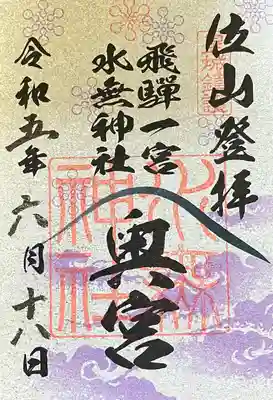 位山登拝
飛驒一宮
水無神社
奥宮
令和五年
六月十八日